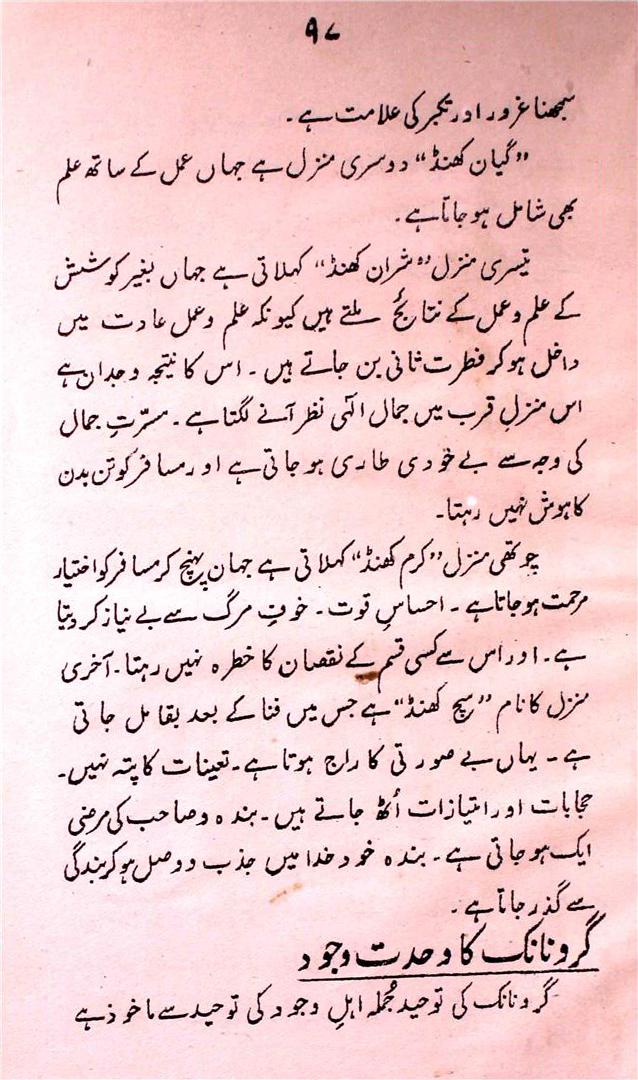 ۹۷
سمجھنا غرور اور تکبر کی علامت ہے۔
”گیان کھنڈ“ دوسری منزل ہے جہاں عمل کے ساتھ علم
بھی شامل ہو جاتا ہے۔
تیسری منزل ”شران کھنڈ“ کہلاتی ہے جہاں بغیر کوشش
کے علم و عمل کے نتائج ملتے ہیں کیونکہ علم و عمل عادت میں
داخل ہو کر فطرت ثانی بن جاتے ہیں۔ اس کا نتیجہ وجدان ہے
اس منزلِ قرب میں جمال الٰہی نظر آنے لگتا ہے۔ مسرّتِ جمال
کی وجہ سے بے خودی طاری ہو جاتی ہے اور مسافر کو تن بدن
کا ہوش نہیں رہتا۔
چوتھی منزل ”کرم کھنڈ“ کہلاتی ہے جہان پہنچ کر مسافر کو اختیار
مرحمت ہو جاتا ہے۔ احساسِ قوت۔ خوفِ مرگ سے بے نیاز کر دیتا
ہے۔ اور اس سے کسی قسم کے نقصان کا خطرہ نہیں رہتا۔ آخری
منزل کا نام ”سچ کھنڈ“ ہے جس میں فنا کے بعد بقا مل جاتی
ہے۔ یہاں بے صورتی کا راج ہوتا ہے۔ تعینات کا پتہ نہیں۔
حجابات اور امتیازات اُٹھ جاتے ہیں۔ بندہ و صاحب کی مرضی
ایک ہو جاتی ہے۔ بندہ خود خدا میں جذب و وصل ہو کر بندگی
سے گذر جاتا ہے۔
گرو نانک کا وحدت وجود
گرو نانک کی توحید جُملہ اہلِ وجود کی توحید سے ماخوذ ہے